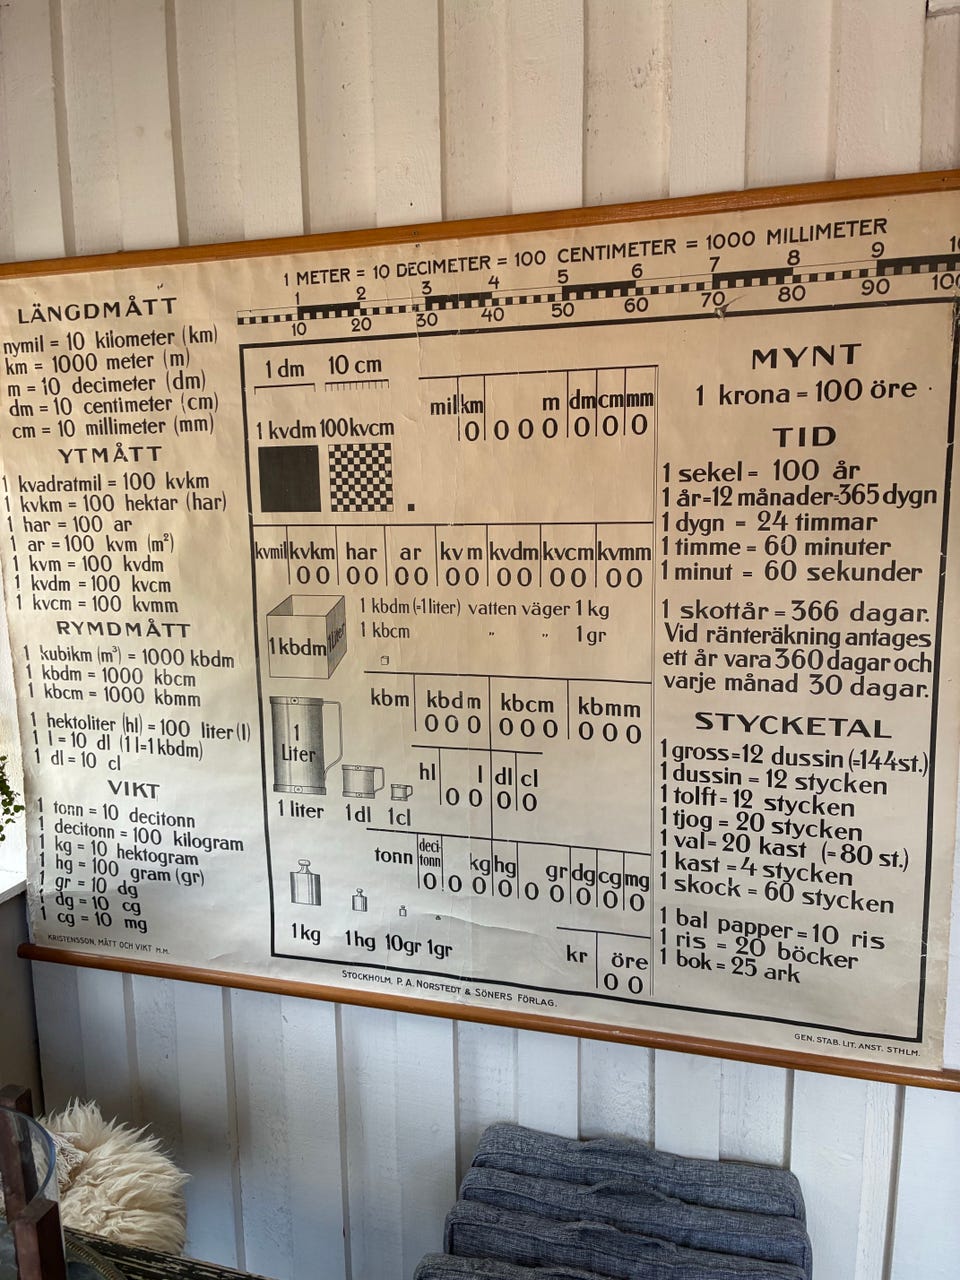 1 METER = 10 DECIMETER = 100 CENTIMETER = 1000 MILLIMETER
1 2 3 4 5 6 7 8 9
10 20 30 40 50 60 70 80 90 100
LÄNGDMÅTT
nymil = 10 kilometer (km)
km = 1000 meter (m)
m = 10 decimeter (dm)
dm = 10 centimeter (cm)
cm = 10 millimeter (mm)
YTMÅTT
1 kvadratmil = 100 kvkm
1 kvkm = 100 hektar (har)
1 har = 100 ar
1 ar = 100 kvm (m²)
1 kvm = 100 kvdm
1 kvdm = 100 kvcm
1 kvcm = 100 kvmm
RYMDMÅTT
1 kubikm (m³) = 1000 kbdm
1 kbdm = 1000 kbcm
1 kbcm = 1000 kbmm
1 hektoliter (hl) = 100 liter (l)
1 l = 10 dl (1 l = 1 kbdm)
1 dl = 10 cl
VIKT
1 tonn = 10 decitonn
1 decitonn = 100 kilogram
1 kg = 10 hektogram
1 hg = 100 gram (gr)
1 gr = 10 dg
1 dg = 10 cg
1 cg = 10 mg
KRISTENSSON, MÅTT OCH VIKT M.M.
1 dm 10 cm
mil km m dm cm mm
0 0 0 0 0 0 0
1 kvdm 100 kvcm
kvmil kvkm har ar kvm kvdm kvcm kvmm
00 00 00 00 00 00 00
1 kbdm 1 liter
1 kbdm (=1 liter) vatten väger 1 kg
1 kbcm " " 1 gr
kbm kbdm kbcm kbmm
000 000 000
1 Liter
hl l dl cl
0 0 0 0
1 liter 1 dl 1 cl
tonn deci-tonn kg hg gr dg cg mg
0 0 0 0 0 0 0 0 0
1 kg 1 hg 10 gr 1 gr
kr öre
0 0
MYNT
1 krona = 100 öre
TID
1 sekel = 100 år
1 år = 12 månader = 365 dygn
1 dygn = 24 timmar
1 timme = 60 minuter
1 minut = 60 sekunder
1 skottår = 366 dagar.
Vid ränteräkning antages
ett år vara 360 dagar och
varje månad 30 dagar.
STYCKETAL
1 gross = 12 dussin (=144 st.)
1 dussin = 12 stycken
1 tolft = 12 stycken
1 tjog = 20 stycken
1 val = 20 kast (= 80 st.)
1 kast = 4 stycken
1 skock = 60 stycken
1 bal papper = 10 ris
1 ris = 20 böcker
1 bok = 25 ark
STOCKHOLM, P. A. NORSTEDT & SÖNERS FÖRLAG.
GEN. STAB. LIT. ANST. STHLM.